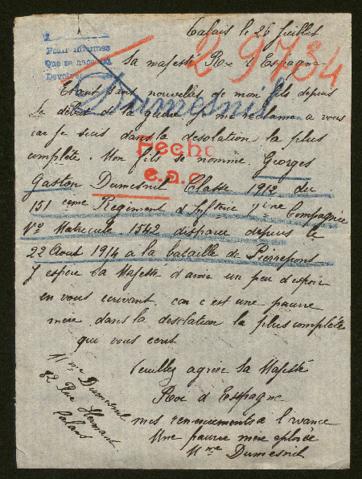 Calais le 26 Juillet
29734
Pour informes
Que se nace
Devolver
Sa majesté Roi d'Espagne
Dumesnil
Etant sans nouvelles de mon fils depuis
le début de la guerre je me réclame a vous
car je suis dans la desolation la plus
complète. Mon fils se nomme Georges
Fecho
e.a.c.
Gaston Dumesnil Classe 1912 du
151 eme Regiment d'Inftrie 1ere Compagnie
No Matricule 1542 disparu depuis le
22 Aout 1914 a la bataille de Pierrepont
J'espère Sa Majesté d'avoir un peu d'espoir
en vous ecrivant, car c'est une pauvre
mère dans la desolation la plus complète
que vous ecrit
Veuillez agréer Sa Majesté
Roi d'Espagne
mes remerciements a l'avance
Une pauvre mère eplorée
Mme Dumesnil
Mme Dumesnil
82 Rue
Calais